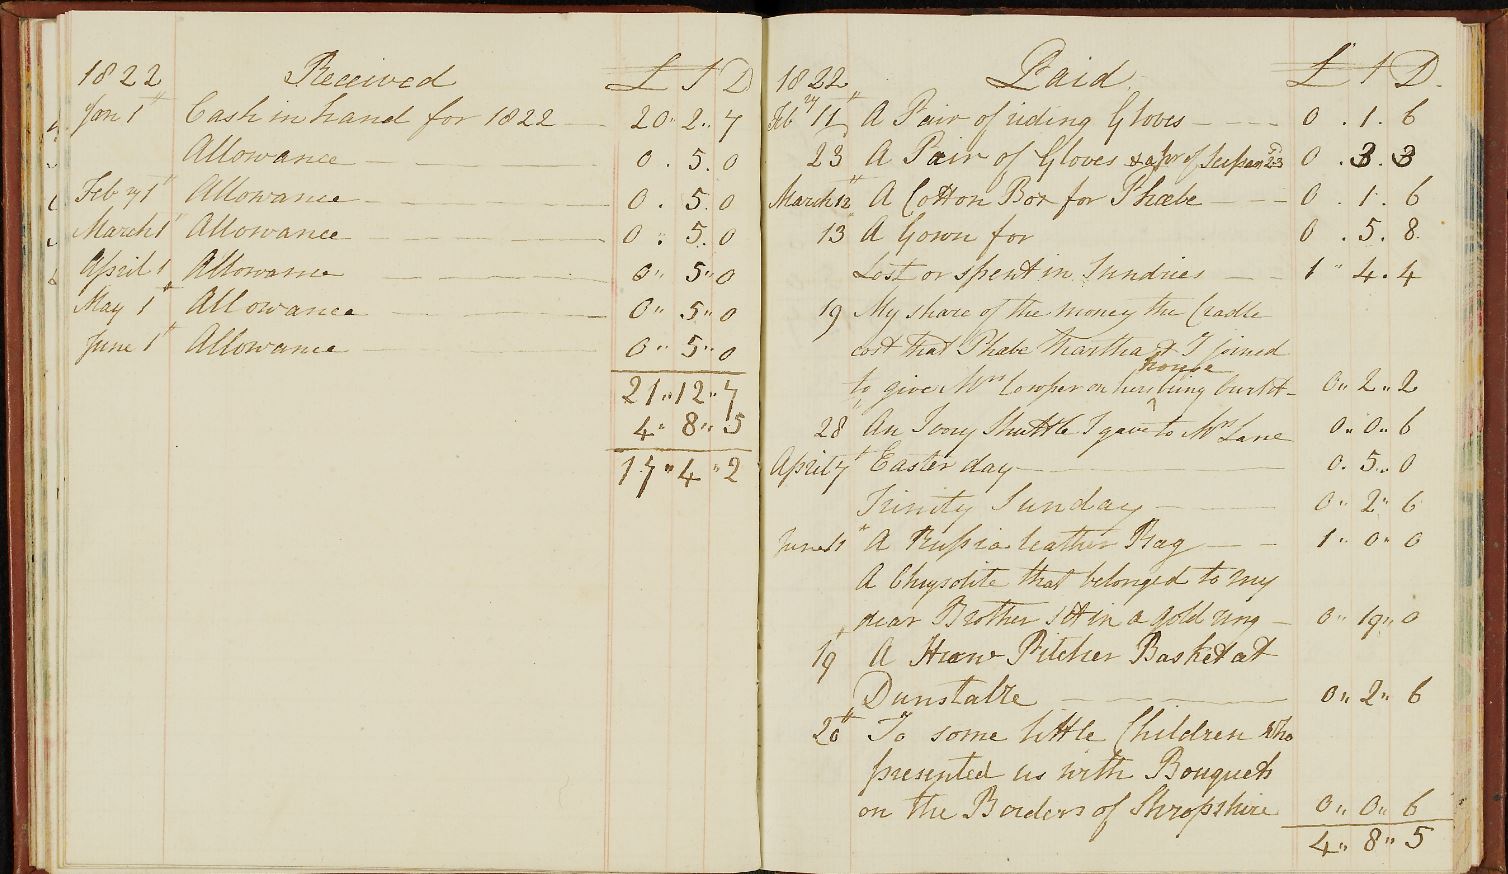 1822 Received £ S D
Jan 1st Cash in hand for 1822 20 " 2 " 7
Allowance 0 . 5 . 0
Feb 1st Allowance 0 . 5 . 0
March 1st Allowance 0 . 5 . 0
April 1 Allowance 0 " 5 " 0
May 1st Allowance 0 " 5 " 0
June 1st Allowance 0 " 5 " 0
21 " 12 " 7
4 " 8 " 5
17 " 4 " 2
1822 Paid £ S D.
Feb 11th A Pair of riding Gloves 0 . 1 . 6
23 A Pair of Gloves & a pr of 0 . 3 . 3
March 12th A Cotton Box for Phœbe 0 . 1 . 6
13 A Gown for 0 . 5 . 8
Lost or spent in Sundries 1 " 4 . 4
19 My share of the money the Cradle
cost that Phœbe Martha & I joined
house
to give Mrs Cowper on her being burnt 0 " 2 " 2
28 An Ivory Shuttle I gave to Mrs Lane 0 " 0 " 6
April 7th Easter day 0 . 5 " 0
Trinity Sunday 0 " 2 " 6
June 11th A Russia leather Bag 1 " 0 " 0
A Chrysolite that belonged to my
dear Brother set in a gold ring 0 " 19 " 0
19th A Straw Pitcher Basket at
Dunstable 0 " 2 " 6
20th To some little Children who
presented us with Bouquets
on the Borders of Shropshire 0 " 0 " 6
4 " 8 " 5